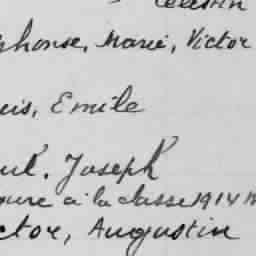 Célestin
phonse, Marie, Victor
uis, Emile
ul. Joseph
oure à la classe 1914
ctor, Augustin